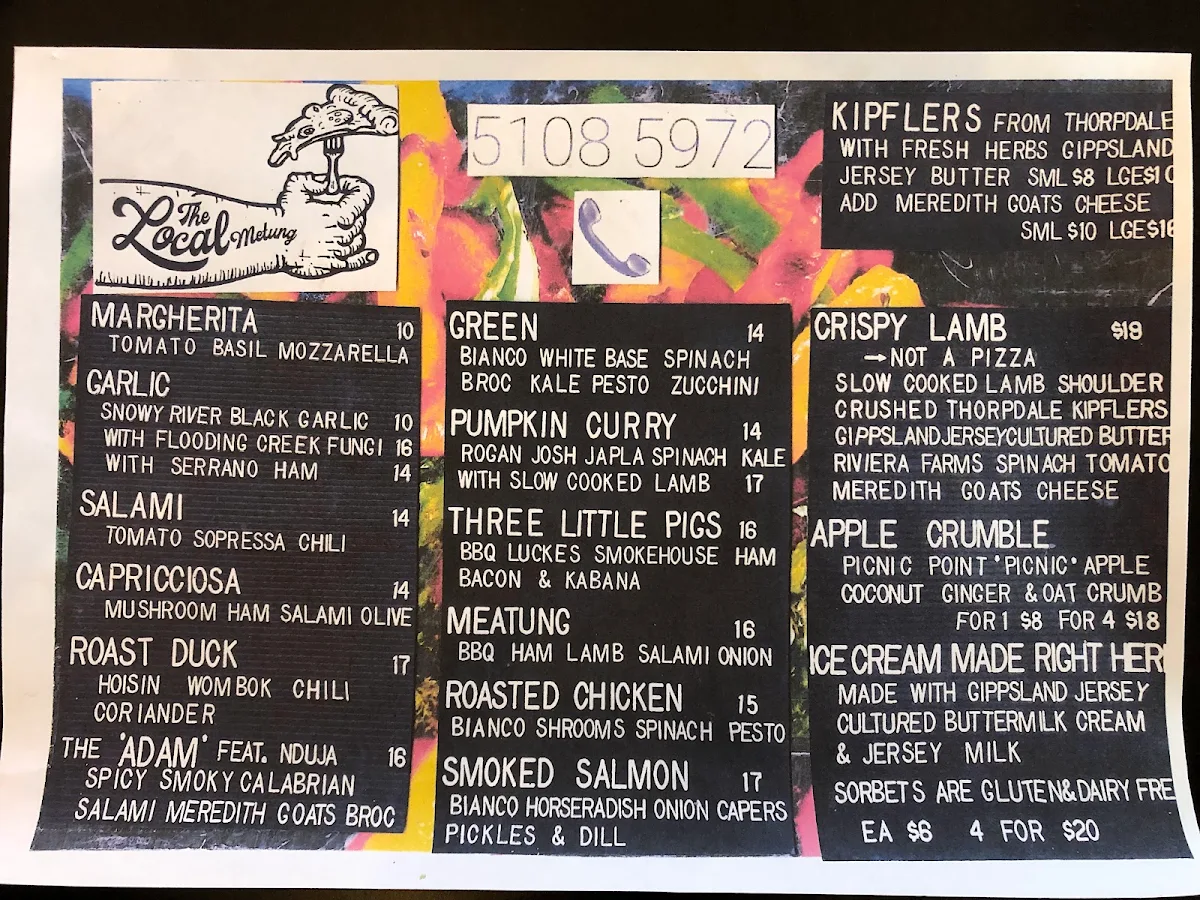 The
Local Metung
5108 5972
KIPFLERS FROM THORPDALE
WITH FRESH HERBS GIPPSLAND
JERSEY BUTTER SML $8 LGE$10
ADD MEREDITH GOATS CHEESE
SML $10 LGE$16
MARGHERITA 10
TOMATO BASIL MOZZARELLA
GARLIC
SNOWY RIVER BLACK GARLIC 10
WITH FLOODING CREEK FUNGI 16
WITH SERRANO HAM 14
SALAMI 14
TOMATO SOPRESSA CHILI
CAPRICCIOSA 14
MUSHROOM HAM SALAMI OLIVE
ROAST DUCK 17
HOISIN WOMBOK CHILI
CORIANDER
THE 'ADAM' FEAT. NDUJA 16
SPICY SMOKY CALABRIAN
SALAMI MEREDITH GOATS BROC
GREEN 14
BIANCO WHITE BASE SPINACH
BROC KALE PESTO ZUCCHINI
PUMPKIN CURRY 14
ROGAN JOSH JAPLA SPINACH KALE
WITH SLOW COOKED LAMB 17
THREE LITTLE PIGS 16
BBQ LUCKES SMOKEHOUSE HAM
BACON & KABANA
MEATUNG 16
BBQ HAM LAMB SALAMI ONION
ROASTED CHICKEN 15
BIANCO SHROOMS SPINACH PESTO
SMOKED SALMON 17
BIANCO HORSERADISH ONION CAPERS
PICKLES & DILL
CRISPY LAMB $19
→NOT A PIZZA
SLOW COOKED LAMB SHOULDER
CRUSHED THORPDALE KIPFLERS
GIPPSLAND JERSEY CULTURED BUTTER
RIVIERA FARMS SPINACH TOMATO
MEREDITH GOATS CHEESE
APPLE CRUMBLE
PICNIC POINT "PICNIC" APPLE
COCONUT GINGER & OAT CRUMB
FOR 1 $8 FOR 4 $18
ICE CREAM MADE RIGHT HER
MADE WITH GIPPSLAND JERSEY
CULTURED BUTTERMILK CREAM
& JERSEY MILK
SORBETS ARE GLUTEN&DAIRY FRE
EA $6 4 FOR $20